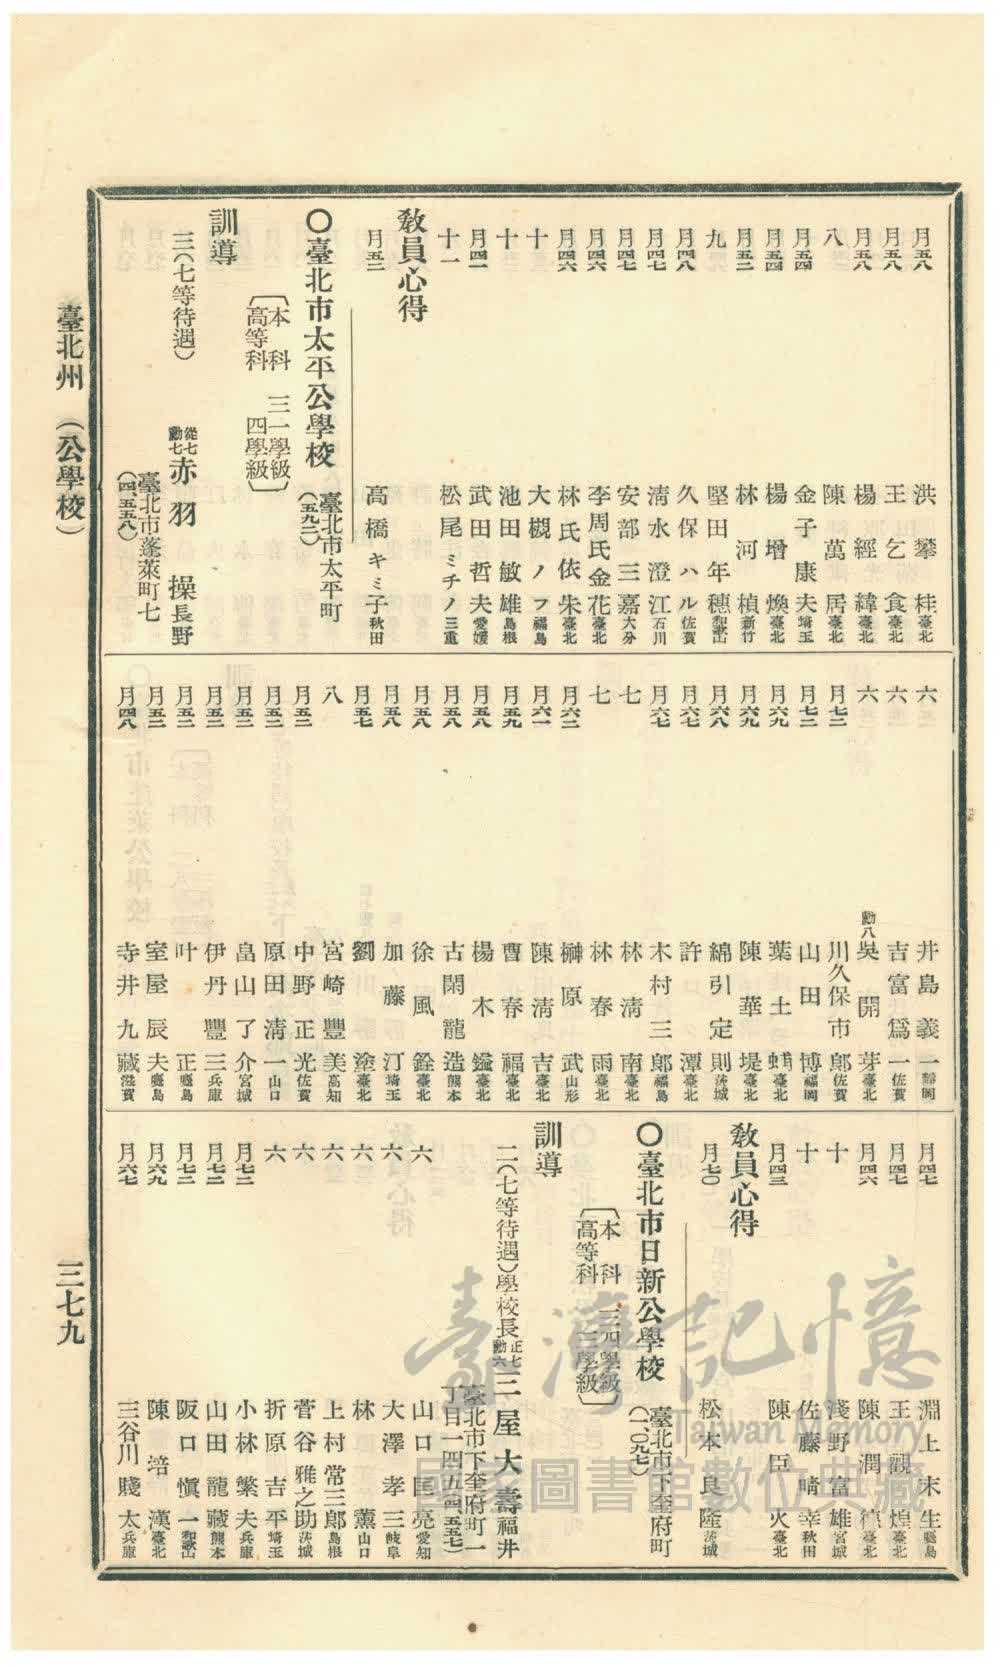 月五八 洪攀桂 臺北
月五八 王乞食 臺北
月五八 楊經緯 臺北
八 陳萬居 臺北
月五四 金子康夫 埼玉
月五四 楊增煥 臺北
月五二 林河楨 新竹
九 堅田年穗 和歌山
月四八 久保ハル 佐賀
月四七 清水澄江 石川
月四七 安部三嘉 大分
月四六 李周氏金花 臺北
月四六 林氏依朱 臺北
十 大槻ノブ 福島
十 池田敏雄 島根
月四一 武田哲夫 愛媛
十一 松尾ミチノ 三重
教員心得
月五二 高橋キミ子 秋田
〇臺北市太平公學校 臺北市太平町(五九二)
本科 三一學級
高等科 四學級
訓導
三(七等待遇) 從七勳七 赤羽操 長野
臺北市蓬萊町七
(四、五五八)
六 井島義一 靜岡
六 吉富爲一 佐賀
六 勳八 吳開芽 臺北
月七二 川久保市郎 佐賀
月七二 山田博 福岡
月六九 葉土 臺北
月六九 陳華堤 臺北
月六八 綿引定則 茨城
月六七 許潭 臺北
月六七 木村三郎 福島
七 林清南 臺北
七 林春雨 臺北
月六二 榊原武 山形
月六一 陳淸吉 臺北
月五九 曹春福 臺北
月五八 楊木鎰 臺北
月五八 古閑龍造 熊本
月五八 徐風銓 臺北
月五八 加藤汀 埼玉
月五七 劉塗 臺北
八 宮崎豐美 高知
月五三 中野正光 佐賀
月五二 原田淸一 山口
月五二 畠山了介 宮城
月五二 伊丹豐三 兵庫
月五二 叶正 鹿兒島
月五二 室屋辰夫 鹿兒島
月四八 寺井九藏 滋賀
月四七 淵上末生 鹿兒島
月四七 王觀煌 臺北
月四六 陳潤德 臺北
十 淺野富雄 宮城
十 佐藤晴幸 秋田
月四三 陳臣火 臺北
教員心得
月七〇 松本良隆 茨城
〇臺北市日新公學校 臺北市下奎府町(一、〇九七)
本科 三四學級
高等科 二學級
訓導
二(七等待遇)學校長 正七勳六 三屋大壽 福井
臺北市下奎府町一
丁目一四五(四、五五七)
六 山口匡亮 愛知
六 大澤孝三 岐阜
六 林薰 山口
六 上村常三郎 島根
六 菅谷雅之助 茨城
六 折原吉平 埼玉
月七二 小林繁夫 兵庫
月七二 山田龍藏 熊本
月七二 阪口愼一 和歌山
月六九 陳培漢 臺北
月六七 三谷川賤太 兵庫
臺北州 (公學校)
三七九
臺灣記憶
Taiwan Memory
國家圖書館數位典藏